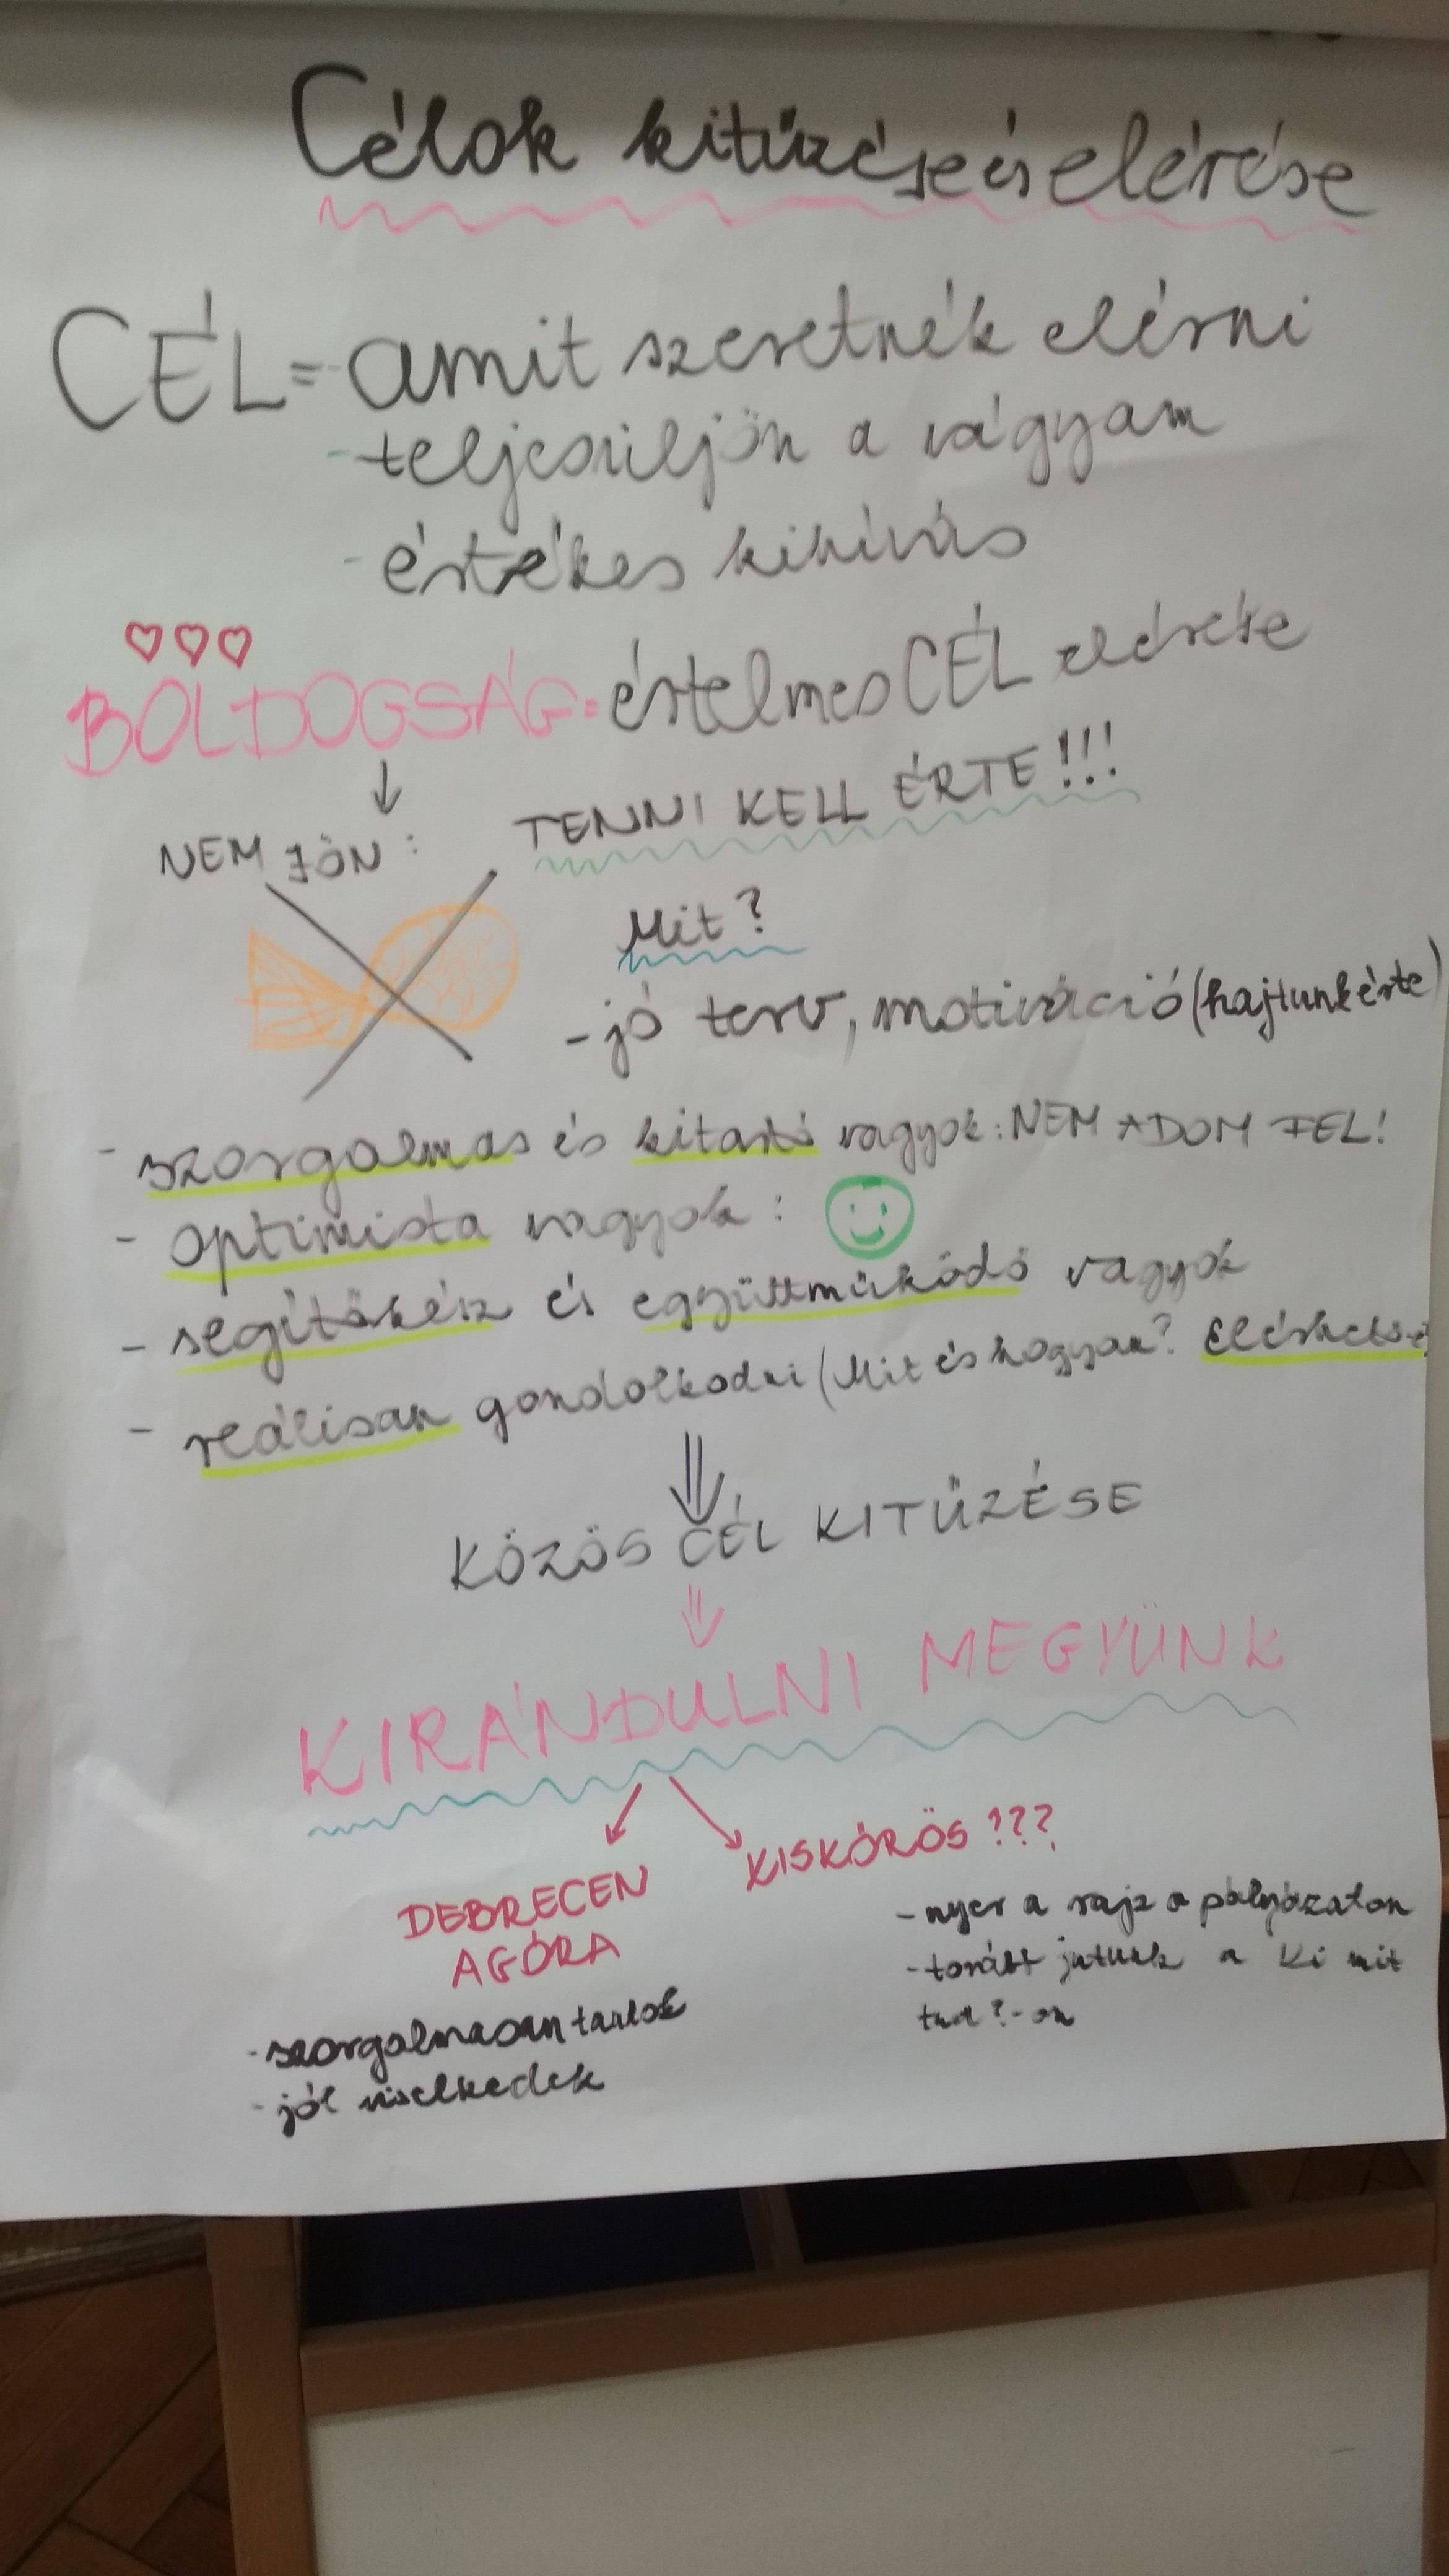 Célok kitűzése és elérése
CÉL = - amit szeretnék elérni
- teljesüljön a vágyam
- értékes kihívás
BOLDOGSÁG = értelmes CÉL elérése
↓
NEM JÖN: TENNI KELL ÉRTE!!!
Mit?
- jó terv, motiváció (hajtunk érte)
- szorgalmas és kitartó vagyok: NEM ADOM FEL!
- optimista vagyok:
- segítőkész és együttműködő vagyok
- reálisan gondolkodni (Mit és hogyan?
KÖZÖS CÉL KITŰZÉSE
KIRÁNDULNI MEGYÜNK
DEBRECEN
AGÓRA
- szorgalmasan tanulok
- jól viselkedek
KISKŐRÖS???
- nyer a rajz a pályázaton
- tovább jutunk a Ki mit
tud?-on